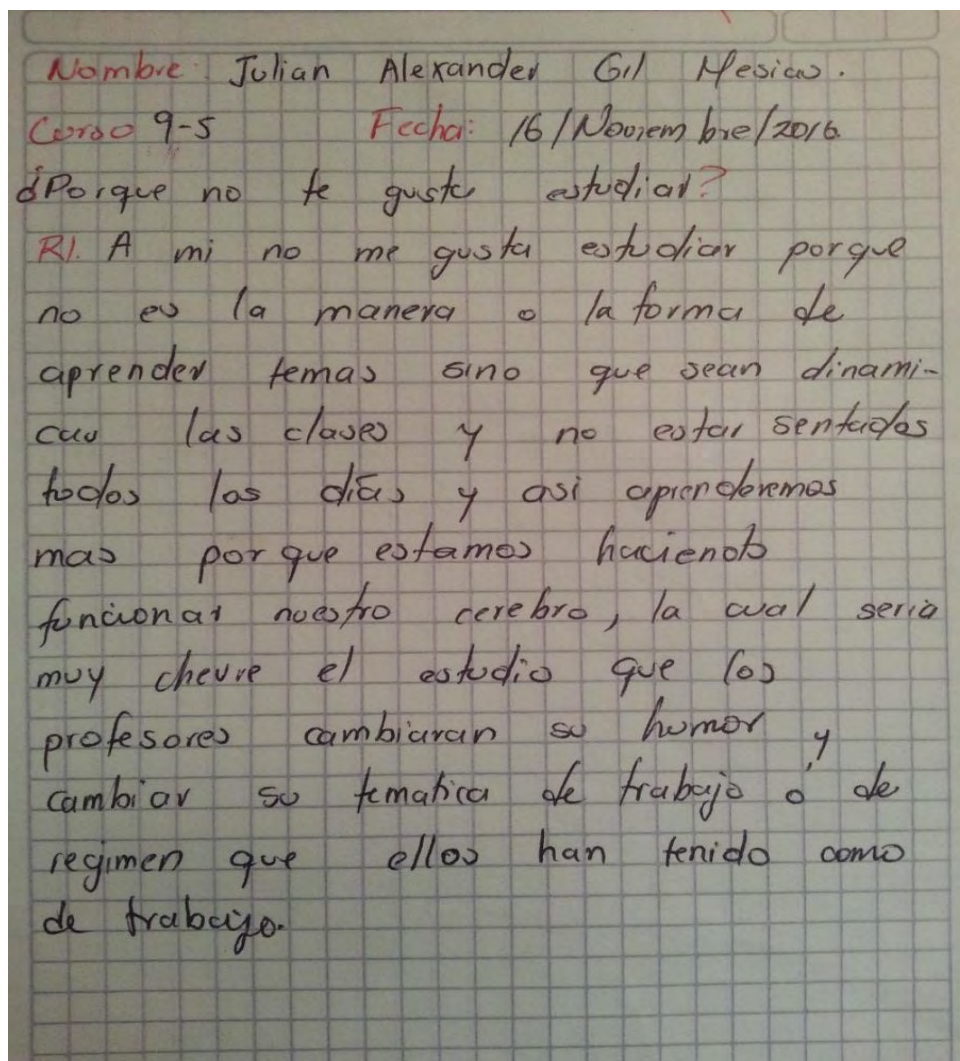 Nombre: Julian Alexander Gil Mesias.
Curso 9-5 Fecha: 16/Noviembre/2016.
¿Porque no te gusta estudiar?
R/. A mi no me gusta estudiar porque
no es la manera o la forma de
aprender temas sino que sean dinami-
cas las clases y no estar sentados
todos los días y asi aprenderemos
mas por que estamos haciendo
funcionar nuestro cerebro, la cual seria
muy chevre el estudio que los
profesores cambiaran su humor y
cambiar su tematica de trabajo ó de
regimen que ellos han tenido como
de trabajo.